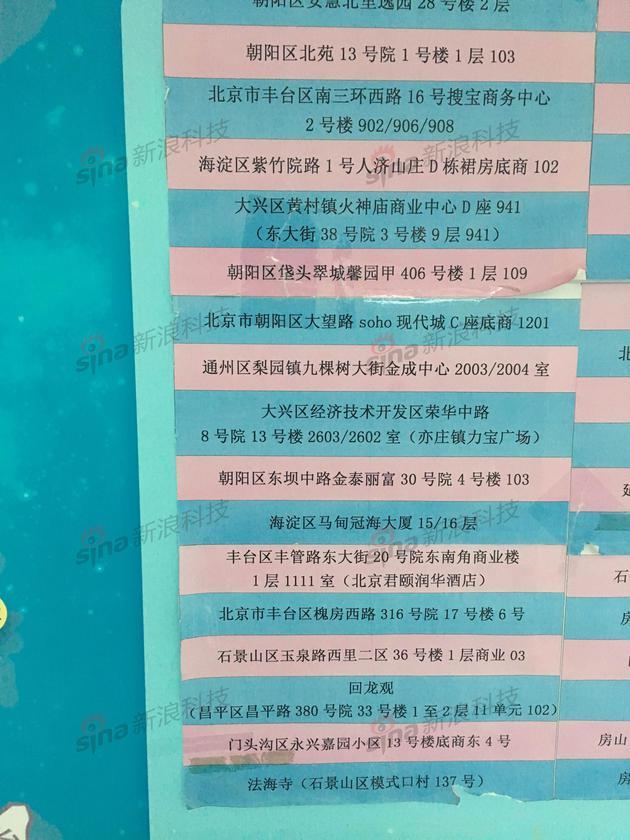 朝阳区安慧北里逸园 28 号楼 2 层
朝阳区北苑 13 号院 1 号楼 1 层 103
北京市丰台区南三环西路 16 号搜宝商务中心
2 号楼 902/906/908
海淀区紫竹院路 1 号人济山庄 D 栋裙房底商 102
大兴区黄村镇火神庙商业中心 D 座 941
（东大街 38 号院 3 号楼 9 层 941）
朝阳区垡头翠城馨园甲 406 号楼 1 层 109
北京市朝阳区大望路 soho 现代城 C 座底商 1201
通州区梨园镇九棵树大街金成中心 2003/2004 室
大兴区经济技术开发区荣华中路
8 号院 13 号楼 2603/2602 室（亦庄镇力宝广场）
朝阳区东坝中路金泰丽富 30 号院 4 号楼 103
海淀区马甸冠海大厦 15/16 层
丰台区丰管路东大街 20 号院东南角商业楼
1 层 1111 室（北京君颐润华酒店）
北京市丰台区槐房西路 316 号院 17 号楼 6 号
石景山区玉泉路西里二区 36 号楼 1 层商业 03
回龙观
（昌平区昌平路 380 号院 33 号楼 1 至 2 层 11 单元 102）
门头沟区永兴嘉园小区 13 号楼底商东 4 号
法海寺（石景山区模式口村 137 号）
北
延
石
房
房山
房
sina 新浪科技
sina 新浪科技
sina 新浪科技
sina 新浪科技
sina 新浪科技
sina 新浪科技
sina 新浪科技
sina 新浪科技